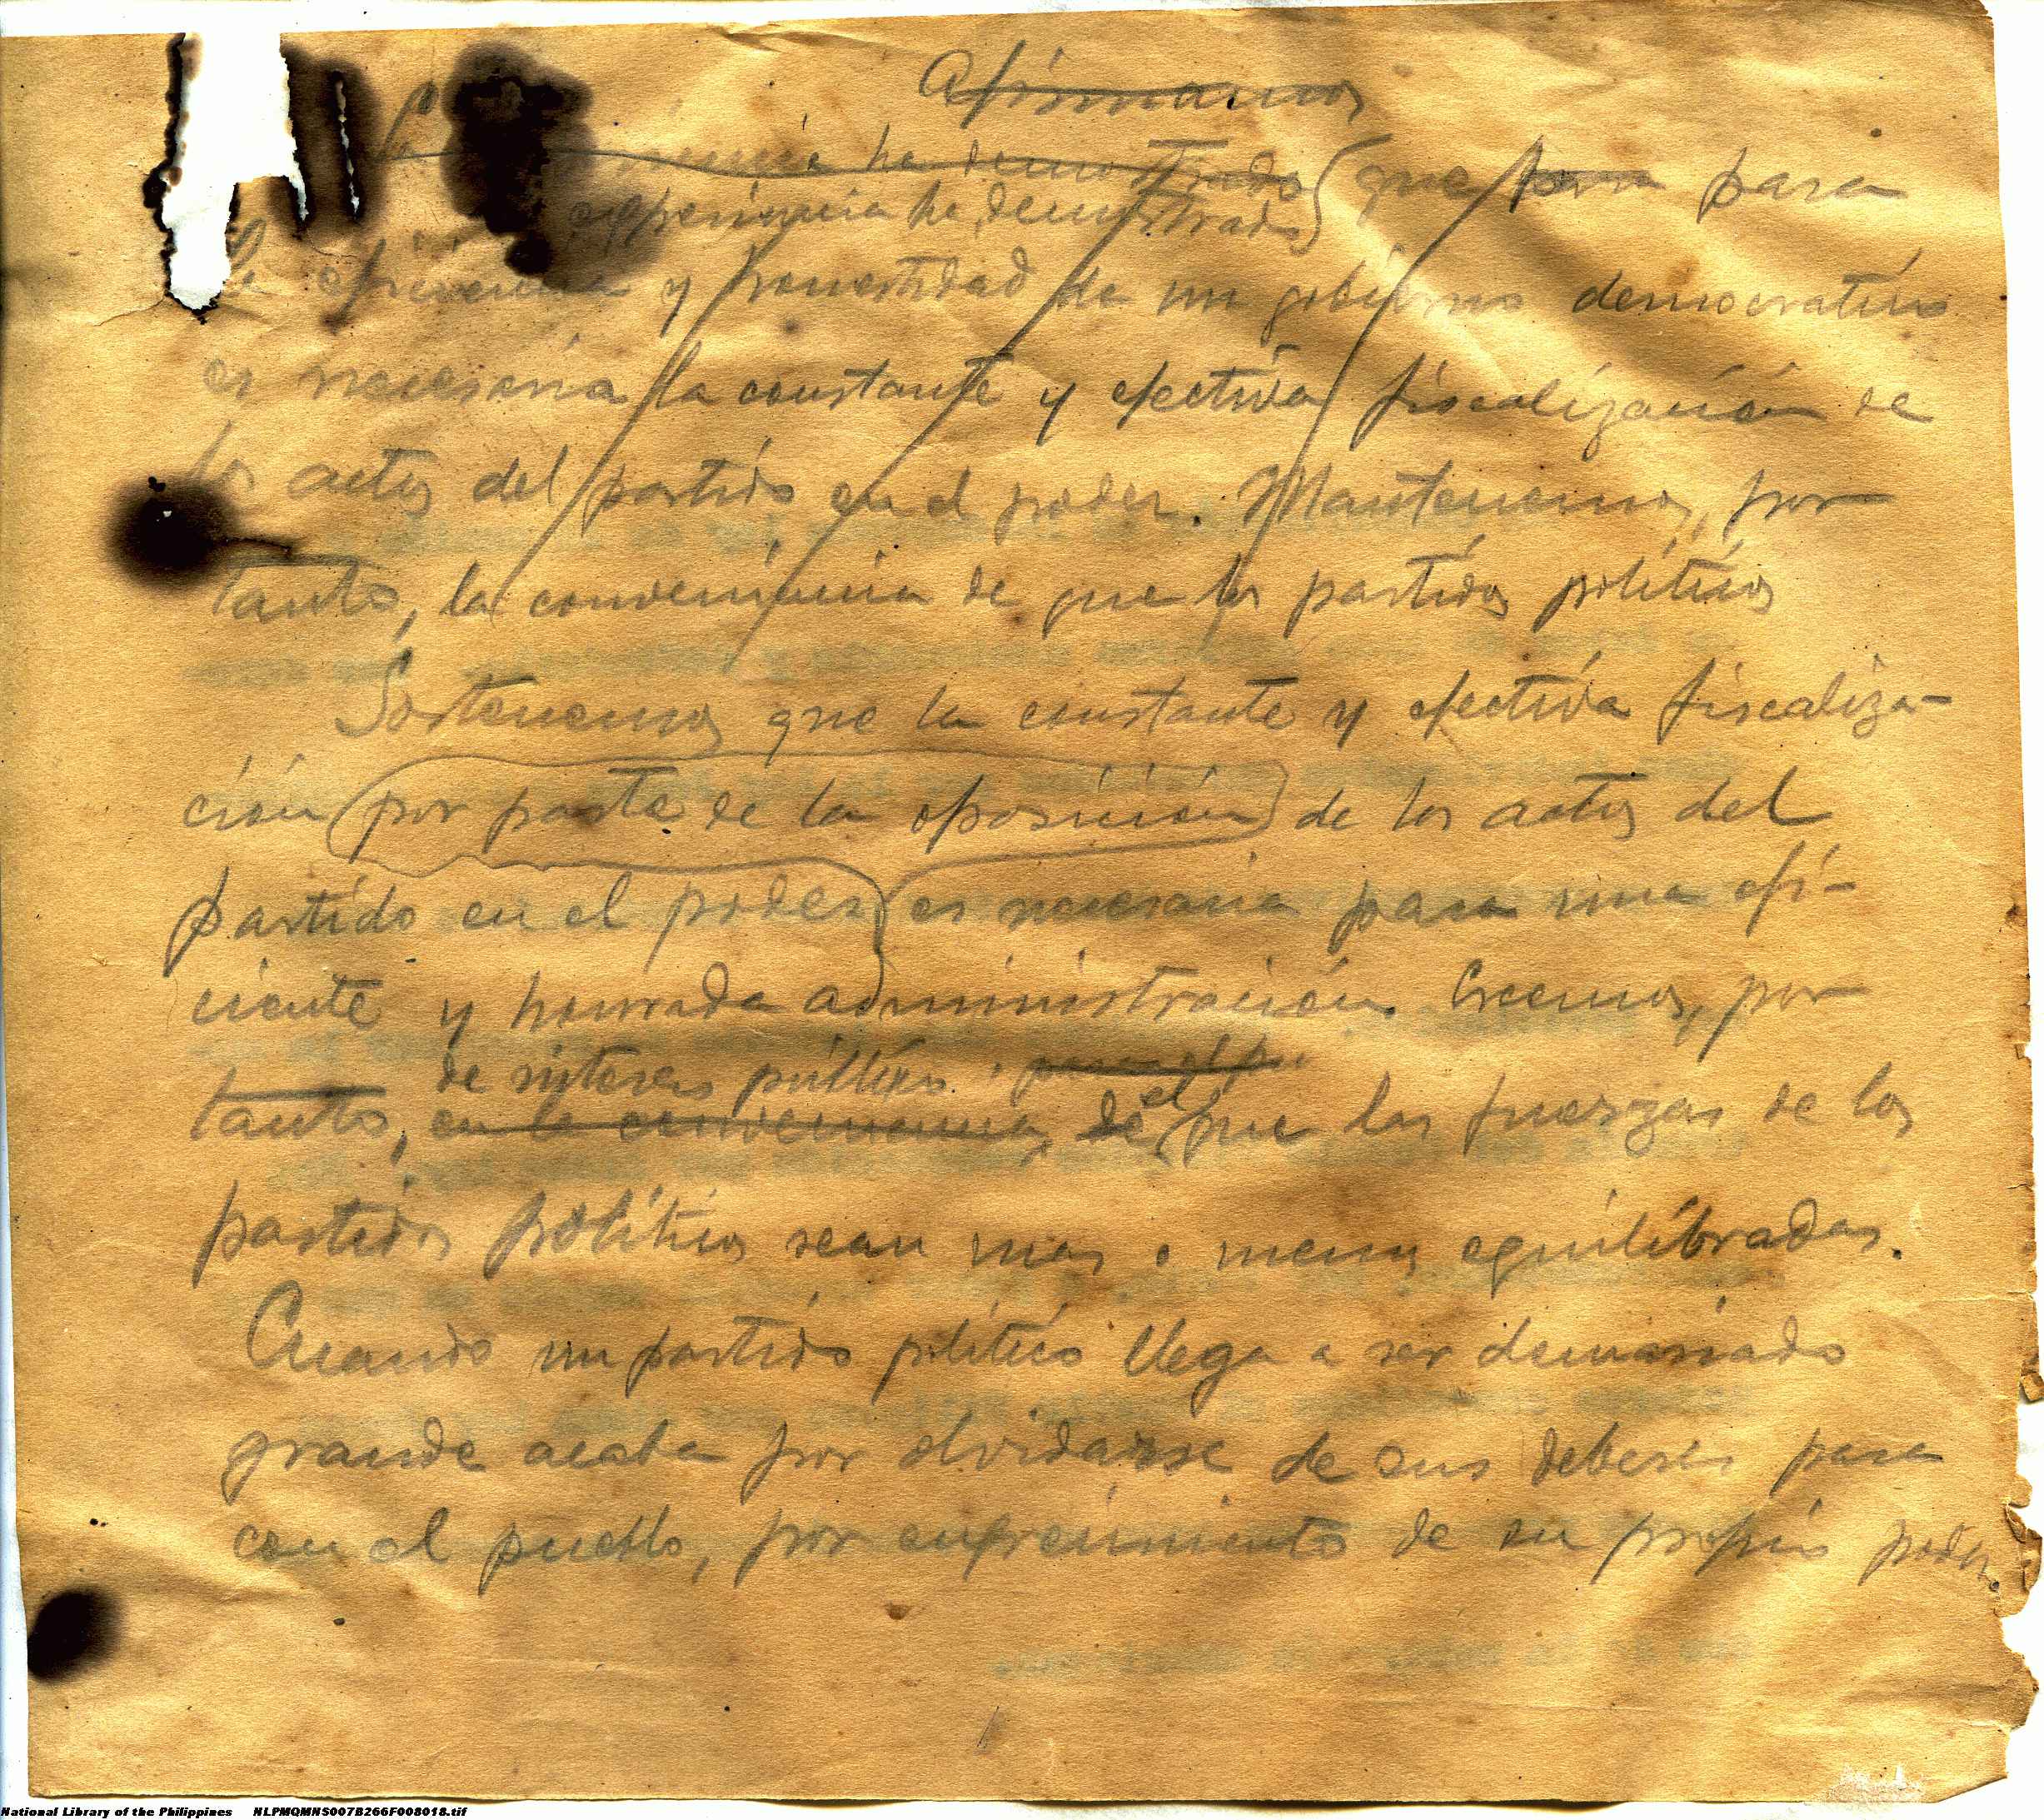 Afirmamos
encia ha demostrado que para
experiencia ha demostrado
la eficiencia y honestidad de un gobierno democratico
es necesaria la constante y efectiva fiscalización de
los actos del partido en el poder. Mantenemos, por
tanto, la conveniencia de que los partidos politicos
Sostenemos que la constante y efectiva fiscaliza-
ción por parte de la oposición de los actos del
partido en el poder es necesaria para una efi-
ciente y honrada administración. Creemos, por
de interes público. para el p
tanto, en la conveniencia, de el que las fuerzas de los
partidos politicos sean mas o menos equilibradas.
Cuando un partido politico llega a ser demasiado
grande acaba por olvidarse de sus deberes para
con el pueblo, por engreimiento de su propio poder.
National Library of the Philippines NLPMQMNS007B266F008018.tif